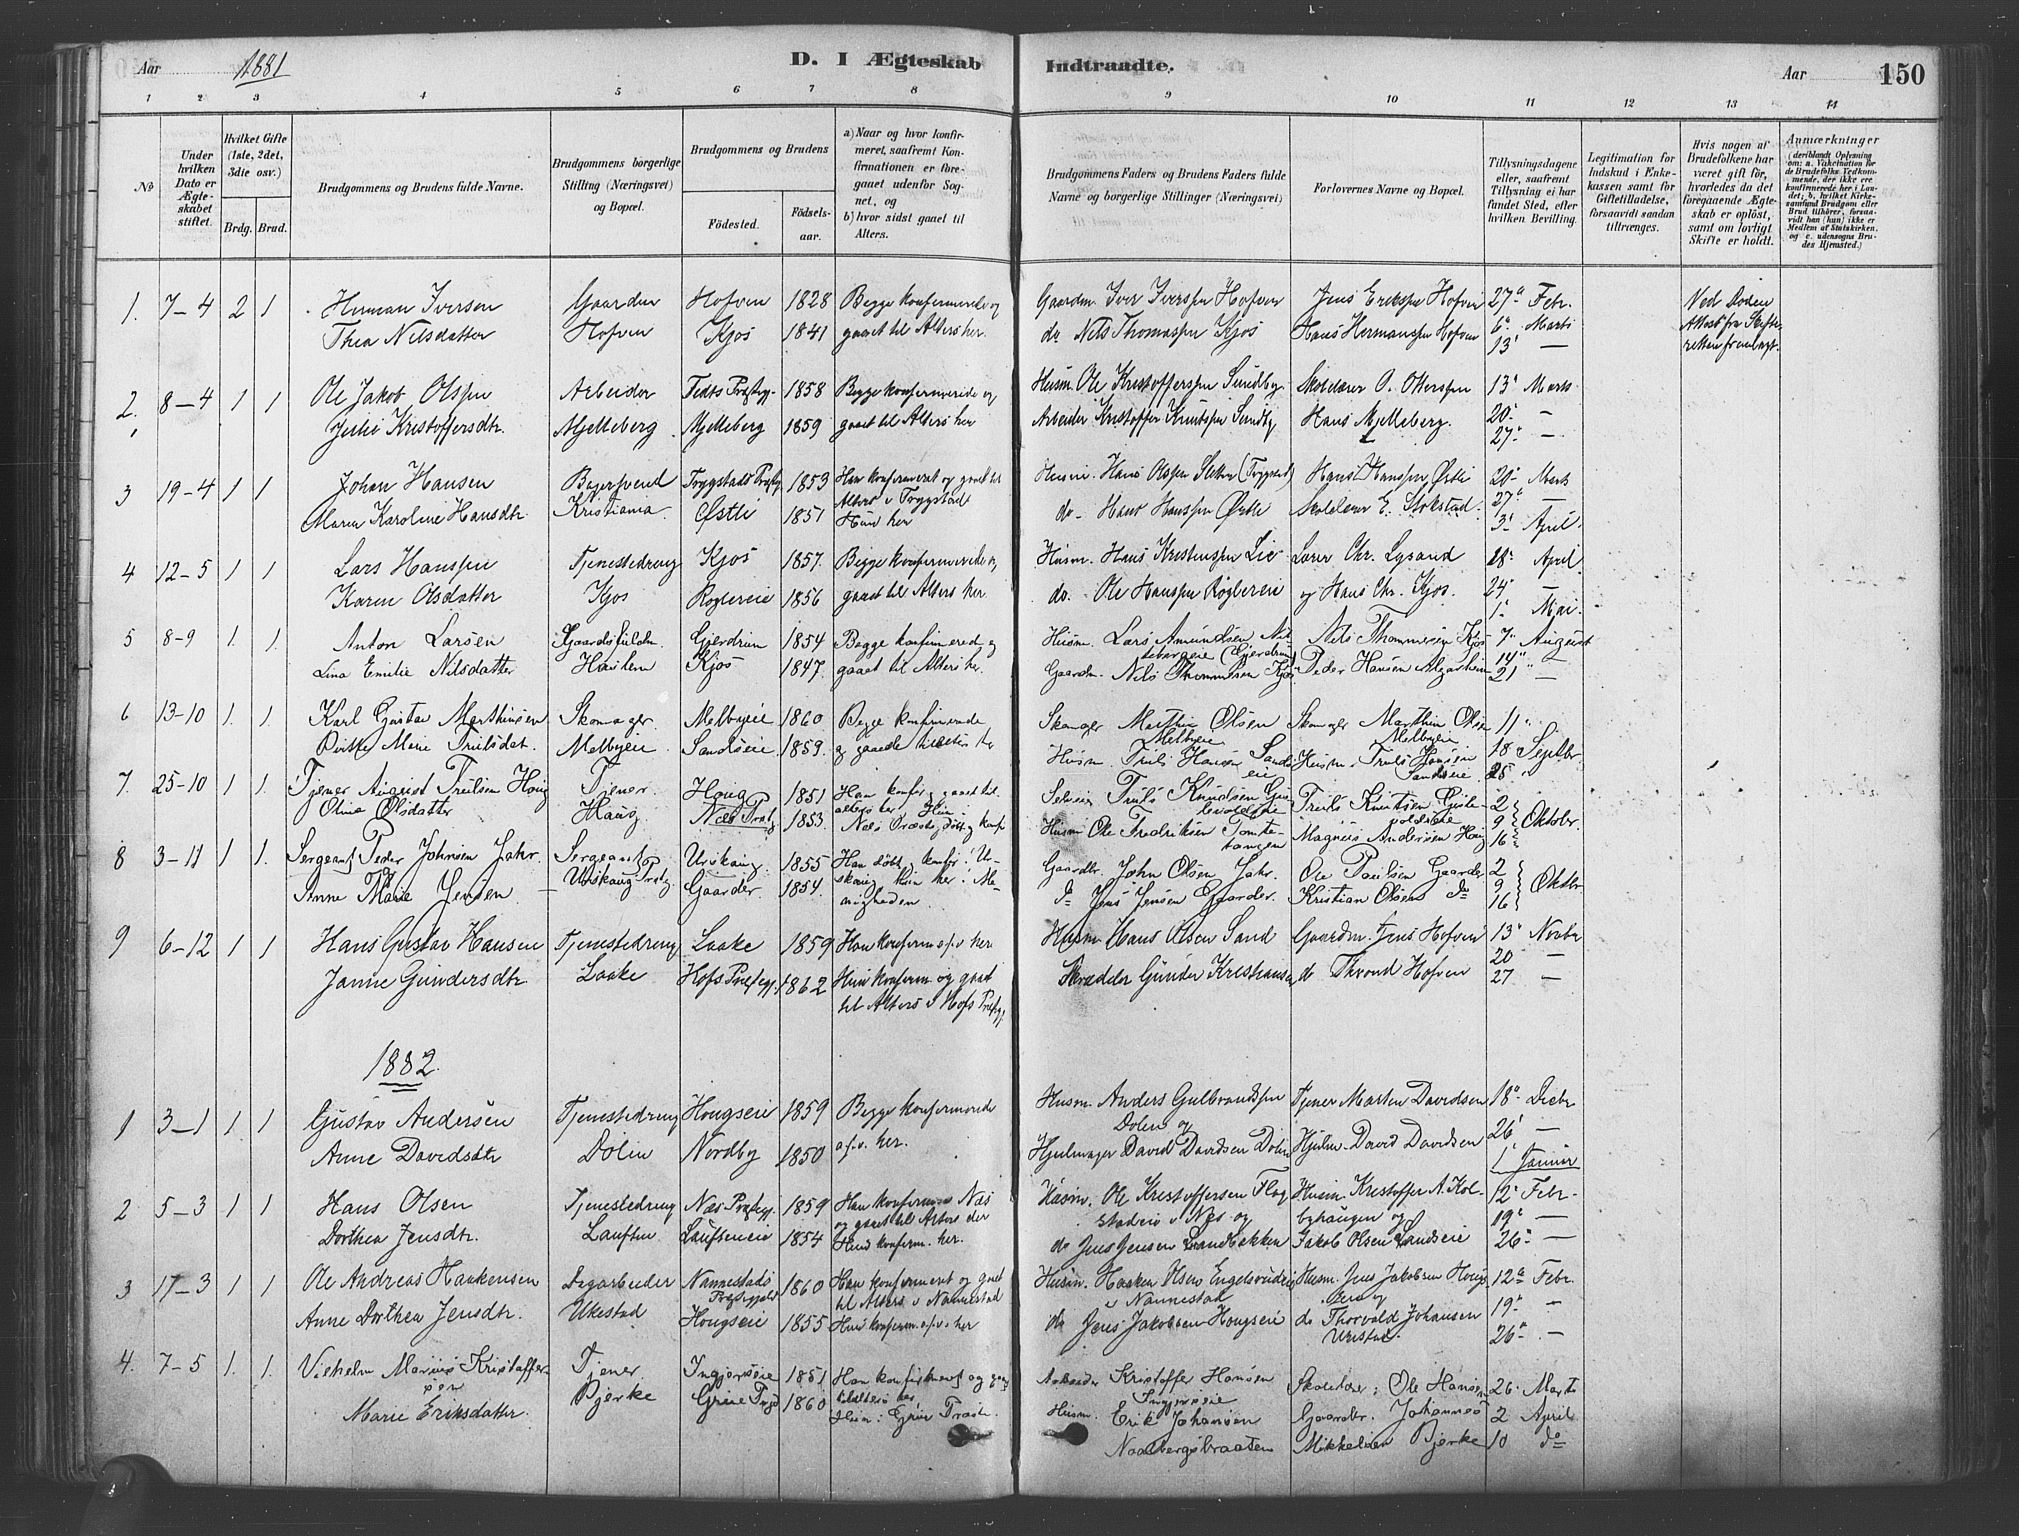 Aar 1881 D. I Ægteskab Indtraadte. Aar 150
1 2 3 4 5 6 7 8 9 10 11 12 13 14
No
Under hvilken Dato er Ægteskabet stiftet.
Hvilket Gifte (1ste, 2det, 3die osv.)
Brdg. Brud.
Brudgommens og Brudens fulde Navne.
Brudgommens borgerlige Stilling (Næringsvei) og Bopæl.
Brudgommens og Brudens
Födested. Födselsaar.
a) Naar og hvor konfirmeret, saafremt Konfirmationen er foregaaet udenfor Sognet, og
b) hvor sidst gaaet til Alters.
Brudgommens Faders og Brudens Faders fulde Navne og borgerlige Stillinger (Næringsvei)
Forlovernes Navne og Bopæl.
Tillysningsdagene eller, saafremt Tillysning ei har fundet Sted, efter hvilken Bevilling.
Legitimation for Indskud i Enkekassen samt for Giftetilladelse, forsaavidt saadan tiltrænges.
Hvis nogen af Brudefolkene har været gift för, hvorledes da det foregaaende Ægteskab er oplöst, samt om lovligt Skifte er holdt.
Anmærkninger
1. 7-4 2 1 Herman Iversen Gaardm Hofven 1828 Begge konfirmerede og Gaardm. Iver Iversen Hofven Jens Eriksen Hofven 27 Febr. Ved Döden
Thea Nilsdatter Hofven Kjos 1841 gaaet til Alters her. do Nils Thomassen Kjos Hans Hermansen Hofven 6 Marts Attest fra Skifte-
13 — retten fremlagt.
2. 8-4 1 1 Ole Jakob Olsen Arbeider Fedts Præstg. 1858 Begge konfirmerede og Husm. Ole Kristoffersen Sundby Skolelærer O. Ottersen 13 Marts
Kristoffersdtr. Mjelleberg Mjelleberg 1859 gaaet til Alters her Arbeider Kristoffer Knutsen Sundby Hans Mjelleberg. 20 —
27 —
3 19-4 1 1 Johan Hansen Kristiania Trygstads Præstg. 1853 Han konfirmeret og gaaet til Husm. Hans Olsen (Trygstad) Hans Hansen Østli 20 Marts
Maren Karoline Hansdtr Østli 1851 Alters i Trygstad do Hans Hansen Østli Skolelærer E. Stokstad. 27 —
Hun her 3 April.
4 12-5 1 1 Lars Hansen Tjenestedreng Kjos 1857. Begge konfirmerede og Husm. Hans Kristensen Lie Lærer Chr. Lysand 18 April
Karen Olsdatter Kjos Roglereie 1856 gaaet til Alters her do. Ole Hansen Roglereie og Hans Chr. Kjos. 24 —
1 Mai.
5 8-9 1. 1. Anton Larsen Gjerdrum 1854 Begge konfirmered. og Husm. Lars Amundsen Nils Thommesen Kjos 7 August
Lina Emilie Nilsdatter Haslen Kjos 1847. gaaet til Alters her. Gaardm. Nils Thommesen Kjos Peder Hansen Algarheim 14 "
21 —
6 13-10 1. 1. Karl Gustav Marthinsen Skomager. Melbyeie 1860 Begge konfirmerede Skomager Marthin Olsen Skomager Marthin Olsen 11
Marie Trulsdat. Melbyeie. Sandseie 1859. og gaaede til Alters her Melbyeie Melbyeie 18 Septbr
Husm. Truls Hansen Sandseie Husm. Truls Hansen Sandseie 25
7. 25-10 1 1. Tjener August Trulsen Houg Tjener Houg 1851 Han konfir. og gaaet til Truls Knudsen Truls Knutsen 2
Olina Olsdatter Haug Næs Præstg 1853. alters her. Hun: Husm Ole Fredriksen Tomtetangen Magnus Andersen Houg 9 Oktober
Næs Præstg. 16
8 3-11 1 1. Sergeant Peder Johnsen Jahr. Sergeant Urskoug. 1855 Han döbt og konfir. Ur- Gaardbr. John Olsen Jahr. Ole Paulsen Gaarder 2
Anne Marie Jensen Urskoug Præstg. Gaarder. 1854. skoug Hun her. Me- Do Jens Jensen Gaarder. Kristian Olsen Do 9 Oktbr
nigheden. 16
9 6-12 1 1 Hans Gustav Hansen Tjenestedreng Laake 1859 Han konfirm. o.s.v. her Husm. Hans Olsen Sand Gaardm. Jens Hofven 13 Novbr
Janne Gundersdtr Laake Hofs Præstegj. 1862 Hun konfirm. og gaaet Skrædder Gunder Kristiansen do Thrond Hofven 20 —
til Alters i Hofs Præstegj. 27 —
1882.
1 3-1 1. 1 Gustav Andersen Tjenestedreng Hougseie 1859 Begge konfirmerede Husm. Anders Gulbrandsen Tjener Marten Davidsen 18 Decbr
Anne Davidsdtr Dolin Nordby 1850 o.s.v. her. Dolen og 26 —
Hjulmager David Davidsen Dolen Hjulm. David Davidsen 1 Januar
2 5-3 1 1 Hans Olsen Tjenestedreng Næs Præstegj. 1859 Han konfirmer. Næs Husm. Ole Kristoffersen Husm. Kristoffer A. Kol- 12 Febr.
Dorthea Jensdtr. Lauften Laufteneie 1854 og gaaet til Alters der i Næs og byhaugen og 19 —
Hun konfirm. her. do Jens Jensen Sandbekken Jakob Olsen Sandseie 26 —
3 17-3 1 1 Ole Andreas Haakensen Dagarbeider Nannestads 1860 Han konfirmeret og gaaet Husm. Haaken Olsen Husm. Jens Jakobsen Hougs- 12 Febr
Anne Dorthea Jensdtr. Ukestad Præstegjeld til Alters i Nannestad i Nannestad eie og 19 —
Hougseie 1855 Hun konfirm. o.s.v. her do Jens Jakobsen Hougseie do Thorvald Johansen 26 —
4. 7-5 1. 1. Vilhelm Marius Kristoffer- Tjener Ingjerseie 1851 Han konfirmeret og gaaet Arbeider Kristoffer Hansen Skolelærer: Ole Hansen 26 Marts
sen Bjerke Grue Præstg 1860 til alters her Ingjerseie
Marie Eriksdatter. Hun: Grue Præst. Husm. Erik Johansen Gaardbr. Johannes 2 April
Naabergsbraaten Mikkelsen Bjerke 10 Do